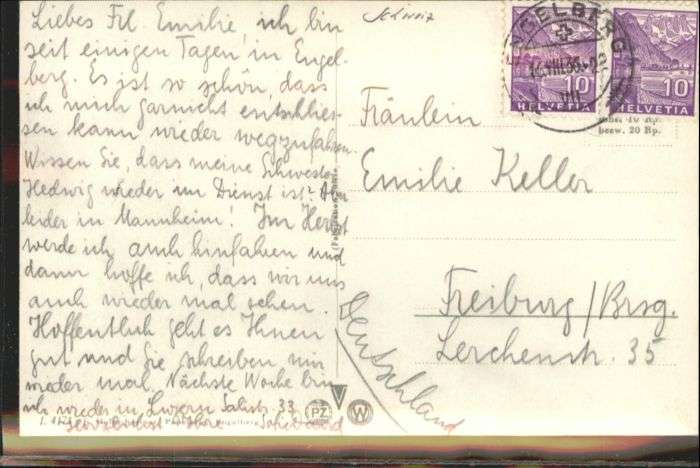 Liebes Frl. Emilie, ich bin
seit einigen Tagen in Engel-
berg. Es ist so schön, dass
ich mich garnicht entschlies-
sen kann wieder wegzufahren.
Wissen Sie, dass meine Schwester
Hedwig wieder im Dienst ist? Aber
leider in Mannheim! Im Herbst
werde ich auch hinfahren und
dann hoffe ich, dass wir uns
auch wieder mal sehen.
Hoffentlich geht es Ihnen
gut und Sie schreiben mir
wieder mal. Nächste Woche bin
ich wieder in Luzern 33
Ihre
Schweiz
ENGELBERG
10
HELVETIA
10
HELVETIA
bezw. 20 Rp.
Fräulein
Emilie Keller
Freiburg/Brsg.
Lerchenstr. 35
Deutschland
PZ
W